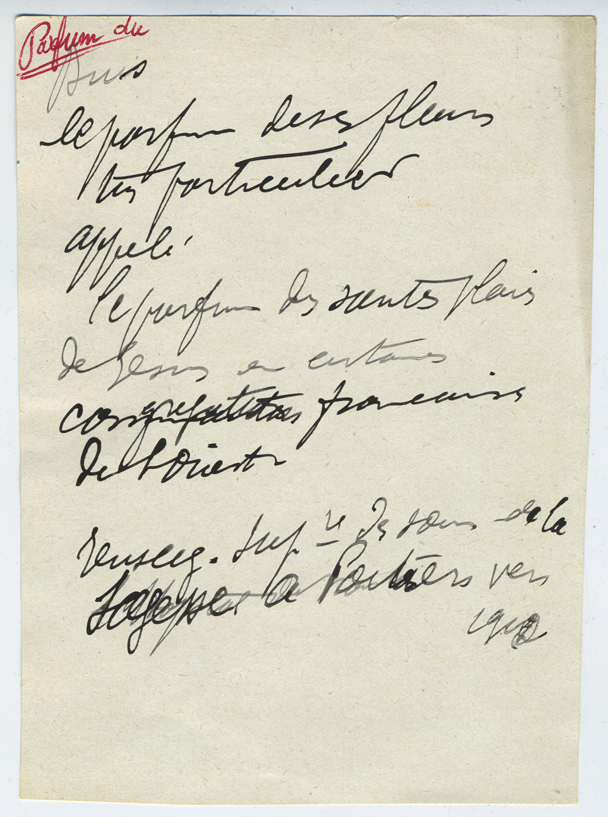 Parfum du
Buis
le parfum de ses fleurs
très particulier
appelé
le parfum des saintes plaies
de Jesus en certaines
congregations françaises
de l'Ouest
renseig. Supre des sœurs de la
Sagesse à Poitiers vers